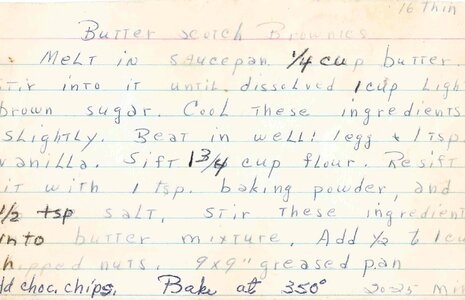 16 Thin
Butter scotch Brownies
Melt in saucepan 1/4 cup butter.
stir into it until dissolved 1 cup ligh
brown sugar. Cool these ingredients
slightly. Beat in well: 1 egg & 1 tsp
vanilla. Sift 1 3/4 cup flour. Resift
it with 1 tsp. baking powder, and
1/2 tsp salt, Stir these ingredient
into butter mixture, Add 1/2 to 1 cu
hipped nuts. 9x9" greased pan
dd choc. chips. Bake at 350° 20-25 Mi